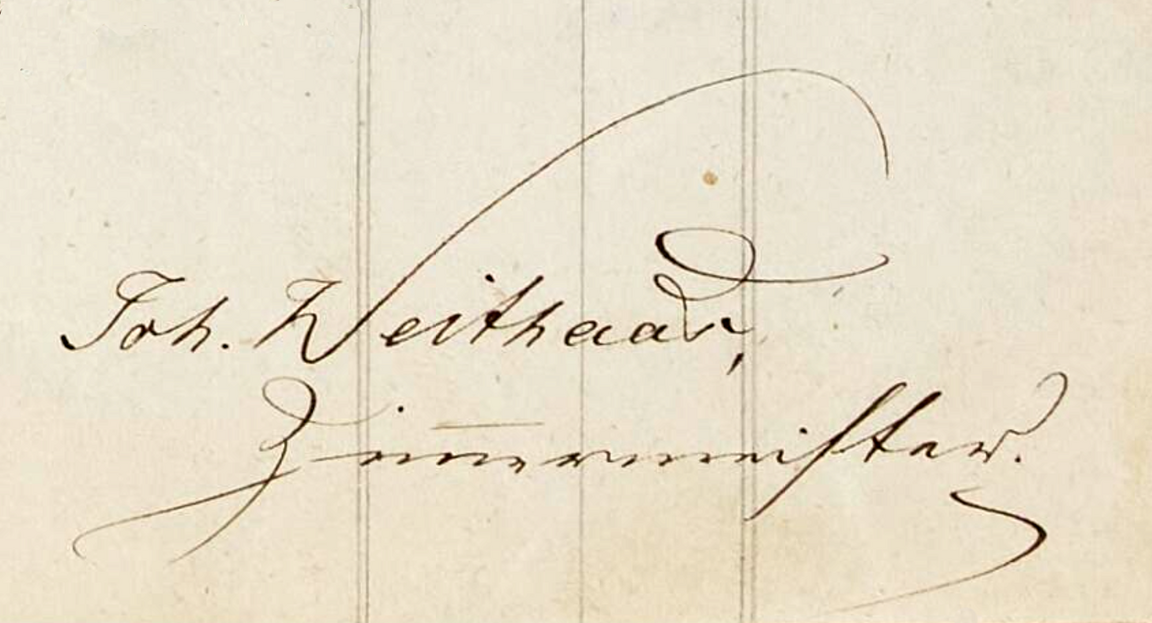 Joh. Weithaas,
Zim̅ermeister.